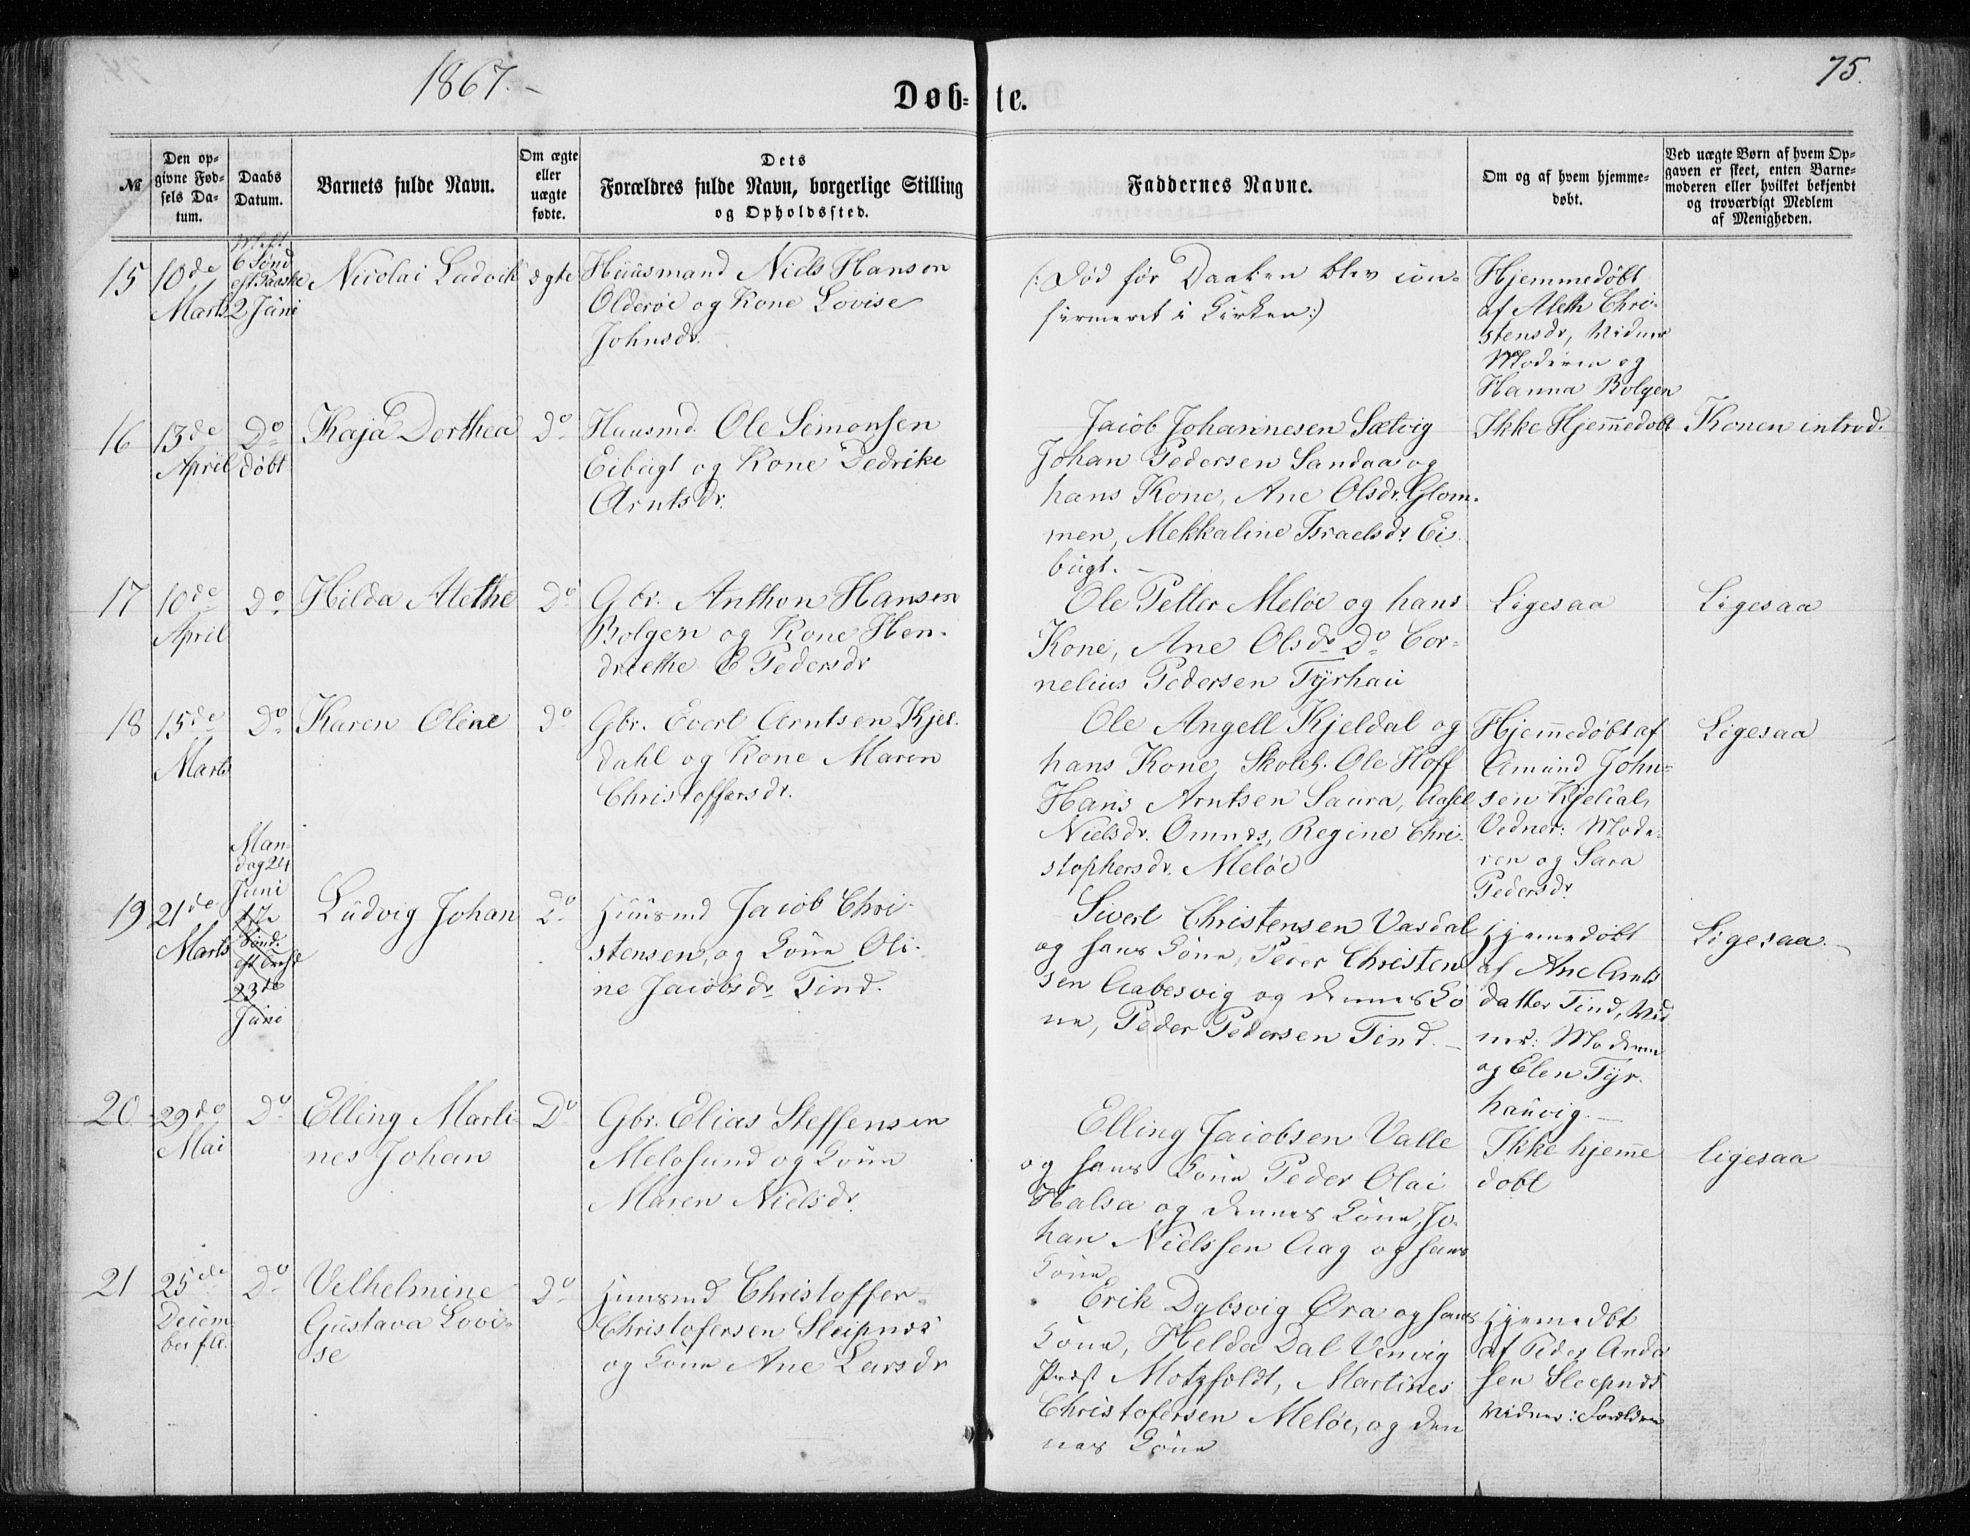 1867.
75.
Døb-te.
№
Den op-
givne Fød-
sels Da-
tum.
Daabs
Datum.
Barnets fulde Navn.
Om ægte
eller
uægte
fødte.
Dets
Forældres fulde Navn, borgerlige Stilling
og Opholdssted.
Faddernes Navne.
Om og af hvem hjemme-
døbt.
Ved uægte Børn af hvem Op-
gaven er skeet, enten Barne-
moderen eller hvilket bekjendt
og troværdigt Medlem
af Menigheden.
15
10de
Marts
6 Sønd
eft Paaske
2 Juni
Nicolai Ludvik
ægte
Huusmand Niels Hansen
Olderøe og Kone Lovise
Johnsdr.
(: Død før Daaben blev con-
firmeret i Kirken :)
Hjemmedøbt
af Aleth Chri-
stensdr, Vidner
Moderen og
Hanna Bolgen
16
13de
April
Do
døbt
Kaja Dorthea
Do
Huusmd. Ole Simonsen
Eibugt og Kone Dedrike
Arntsdr.
Jacob Johannesen Sætvig
Johan Pedersen Sandaa og
hans Kone, Ane Olsdr. Glom-
men, Mekkaline Israelsdr. Ei-
bugt.
Ikke Hjemmedøbt
Konen introd.
17
10de
April
Do
Hilda Alethe
Do
Gbr. Anthon Hansen
Bolgen og Kone Hen-
driethe E Pedersdr
Ole Petter Meløe og hans
Kone, Ane Olsdr Do Cor-
nelius Pedersen Tyrhau
Ligesaa
Ligesaa
18
15de
Marts
Do
Karen Oline
Do
Gbr. Evert Arntsen Kjel-
dahl og Kone Maren
Christoffersdr.
Ole Angell Kjeldal og
hans Kone, Skoleh. Ole Hoff
Hans Arntsen Saura, Aasel
Nielsdr. Omnes, Regine Chri-
stophersdr. Meløe
Hjemmedøbt af
Amund John-
sen Kjeldal,
Vedner: Mode-
ren og Sara
Pedersdr.
Ligesaa
19
21de
Marts
Man-
dag 24
Juni
Sønd.
23de
Juni
Ludvig Johan
Do
Huusmd Jacob Chri-
stensen, og Kone Oli-
ne Jacobsdr Tind.
Sivert Christensen Vasdal
og hans Kone, Peder Christen
sen Aabesvig og dennes Ko
ne, Peder Pedersen Tind.
Hjemmedøbt
af Ane Arnts
datter Tind, Vid
ner: Moderen
og Elen Tyr-
hauvig.
Ligesaa.
20
29de
Mai
Do
Elling Marti-
nes Johan
Do
Gbr. Elias Steffensen
Meløsund og Kone
Maren Nielsdr.
Elling Jacobsen Valle
og hans Kone Peder Olai
Halsa og dennes Kone, Jo-
han Nielssen Aag og hans
Kone
Ikke hjemme
døbt
Ligesaa
21
25de
Decem
ber f.A.
Do
Velhelmine
Gustava Lovi-
se
Do
Huusmd Christoffer
Christofersen Sleipnes
og Kone Ane Larsdr
Erik Dybsvig Øra og hans
Kone, Helda Dal Venvig
Præst Motzfeldt, Martines
Christofersen Meløe, og den
nes Kone
Hjemmedøbt
af Peder Ander
sen Sleepnes
Vidner: Forældrene